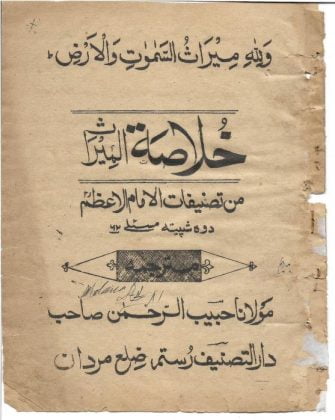 وَلِلّٰهِ مِيْرَاثُ السَّمٰوٰتِ وَالْاَرْضِ ط
خُلاصَةُ المِيْرَاث
من تصنيفات الامام الاعظمؒ
دوه شپيته مسئلے
مترجمه
مولانا حبیب الرحمٰن صاحب
دارالتصنیف رستم ضلع مردان